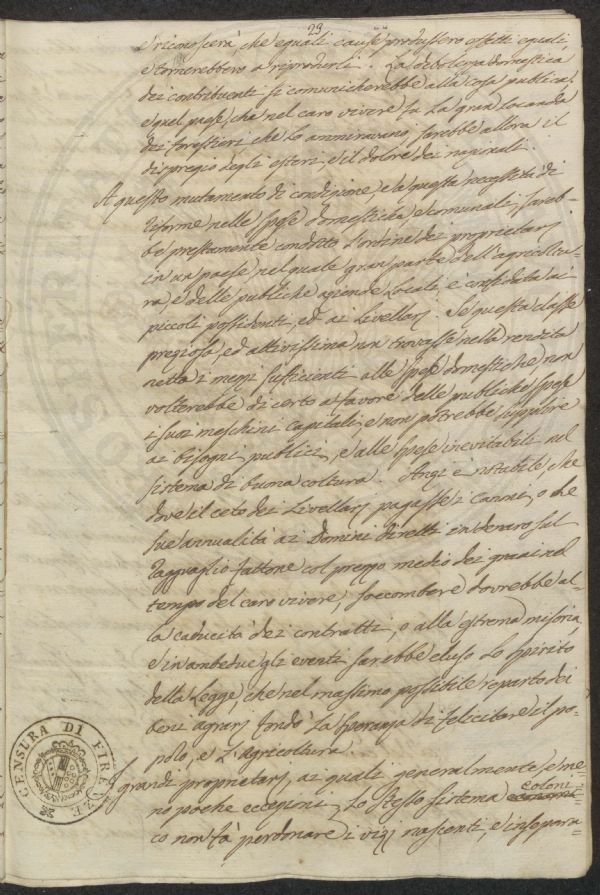 23
e riconoscerà, che eguali cause produssero effetti eguali,
e tornerebbero a riprodurli. La debolezza domestica
dei contribuenti si comunicherebbe alla cosa pubblica,
e quel paese, che nel caro vivere fu la gran locanda
dei forestieri che lo ammiravano, sarebbe allora il
dispregio degli esteri, e il dolore dei nazionali.
A questo mutamento di condizione, e a questa necessità di
riforme nelle spese domestiche, e comunali, sareb-
be prestamente condotto l'ordine dei proprietarj
in un paese, nel quale gran parte dell'agricoltu-
ra, e delle pubbliche aziende locali è confidata ai
piccoli possidenti, ed ai Livellarj. Se questa classe
preziosa, ed attivissima non trovasse nella rendita
netta i mezzi sufficienti alle spese domestiche, non
volterebbe di certo a favore delle pubbliche spese
i suoi meschini capitali, e non potrebbe supplire
ai bisogni pubblici, e alle spese inevitabili nel
sistema di buona coltura. Anzi è notabile, che
dove il ceto dei Livellarj pagasse i Canoni, o che
sue annualità ai Domini diretti in denaro sul
ragguaglio fattone col prezzo medio dei grani nel
tempo del caro vivere, soccombere dovrebbe al-
la caducità dei contratti, o alla estrema miseria,
e in ambedue gli eventi sarebbe eluso lo spirito
della Legge, che nel massimo possibile reparto dei
beni agrarj fondò la speranza di felicitare il po-
polo, e l'agricoltura.
I grandi proprietarj, ai quali generalmente, e me-
no poche eccezioni, lo stesso sistema coloni
co non fà perdonare i vizj nascenti, e insepara
CENSURA DI FIRENZE